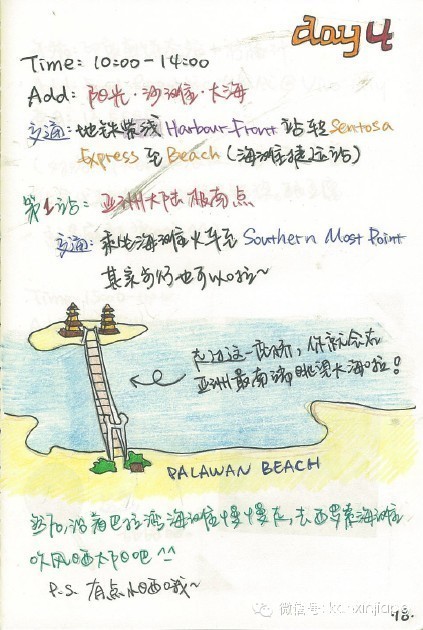 day 4
Time: 10:00-14:00
Add: 阳光·沙滩·大海
交通: 地铁紫线 Harbour Front 站转 Sentosa
Express 至 Beach (海滩捷运站)
第1站: 亚洲大陆极南点
交通: 乘坐海滩火车至 Southern Most Point
其实步行也可以啦~
走过这一座桥, 你就会在
亚洲最南端眺望大海啦!
PALAWAN BEACH
然后,沿着巴拉湾海滩慢慢走,去西罗索海滩
吹风晒太阳吧 ^^
P.S. 有点小晒哦~
微信号: kanxinjiapo
·18·